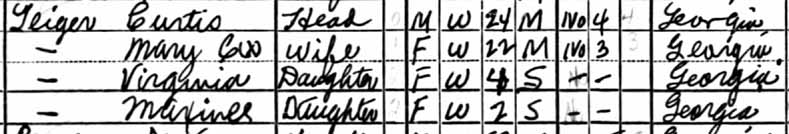 Teiger Curtis Head M W 24 M No 4 4 Georgia
— Mary Eva Wife F W 22 M No 3 3 Georgia
— Virginia Daughter F W 4 S + – Georgia
— Maxinee Daughter F W 2 S + – Georgia